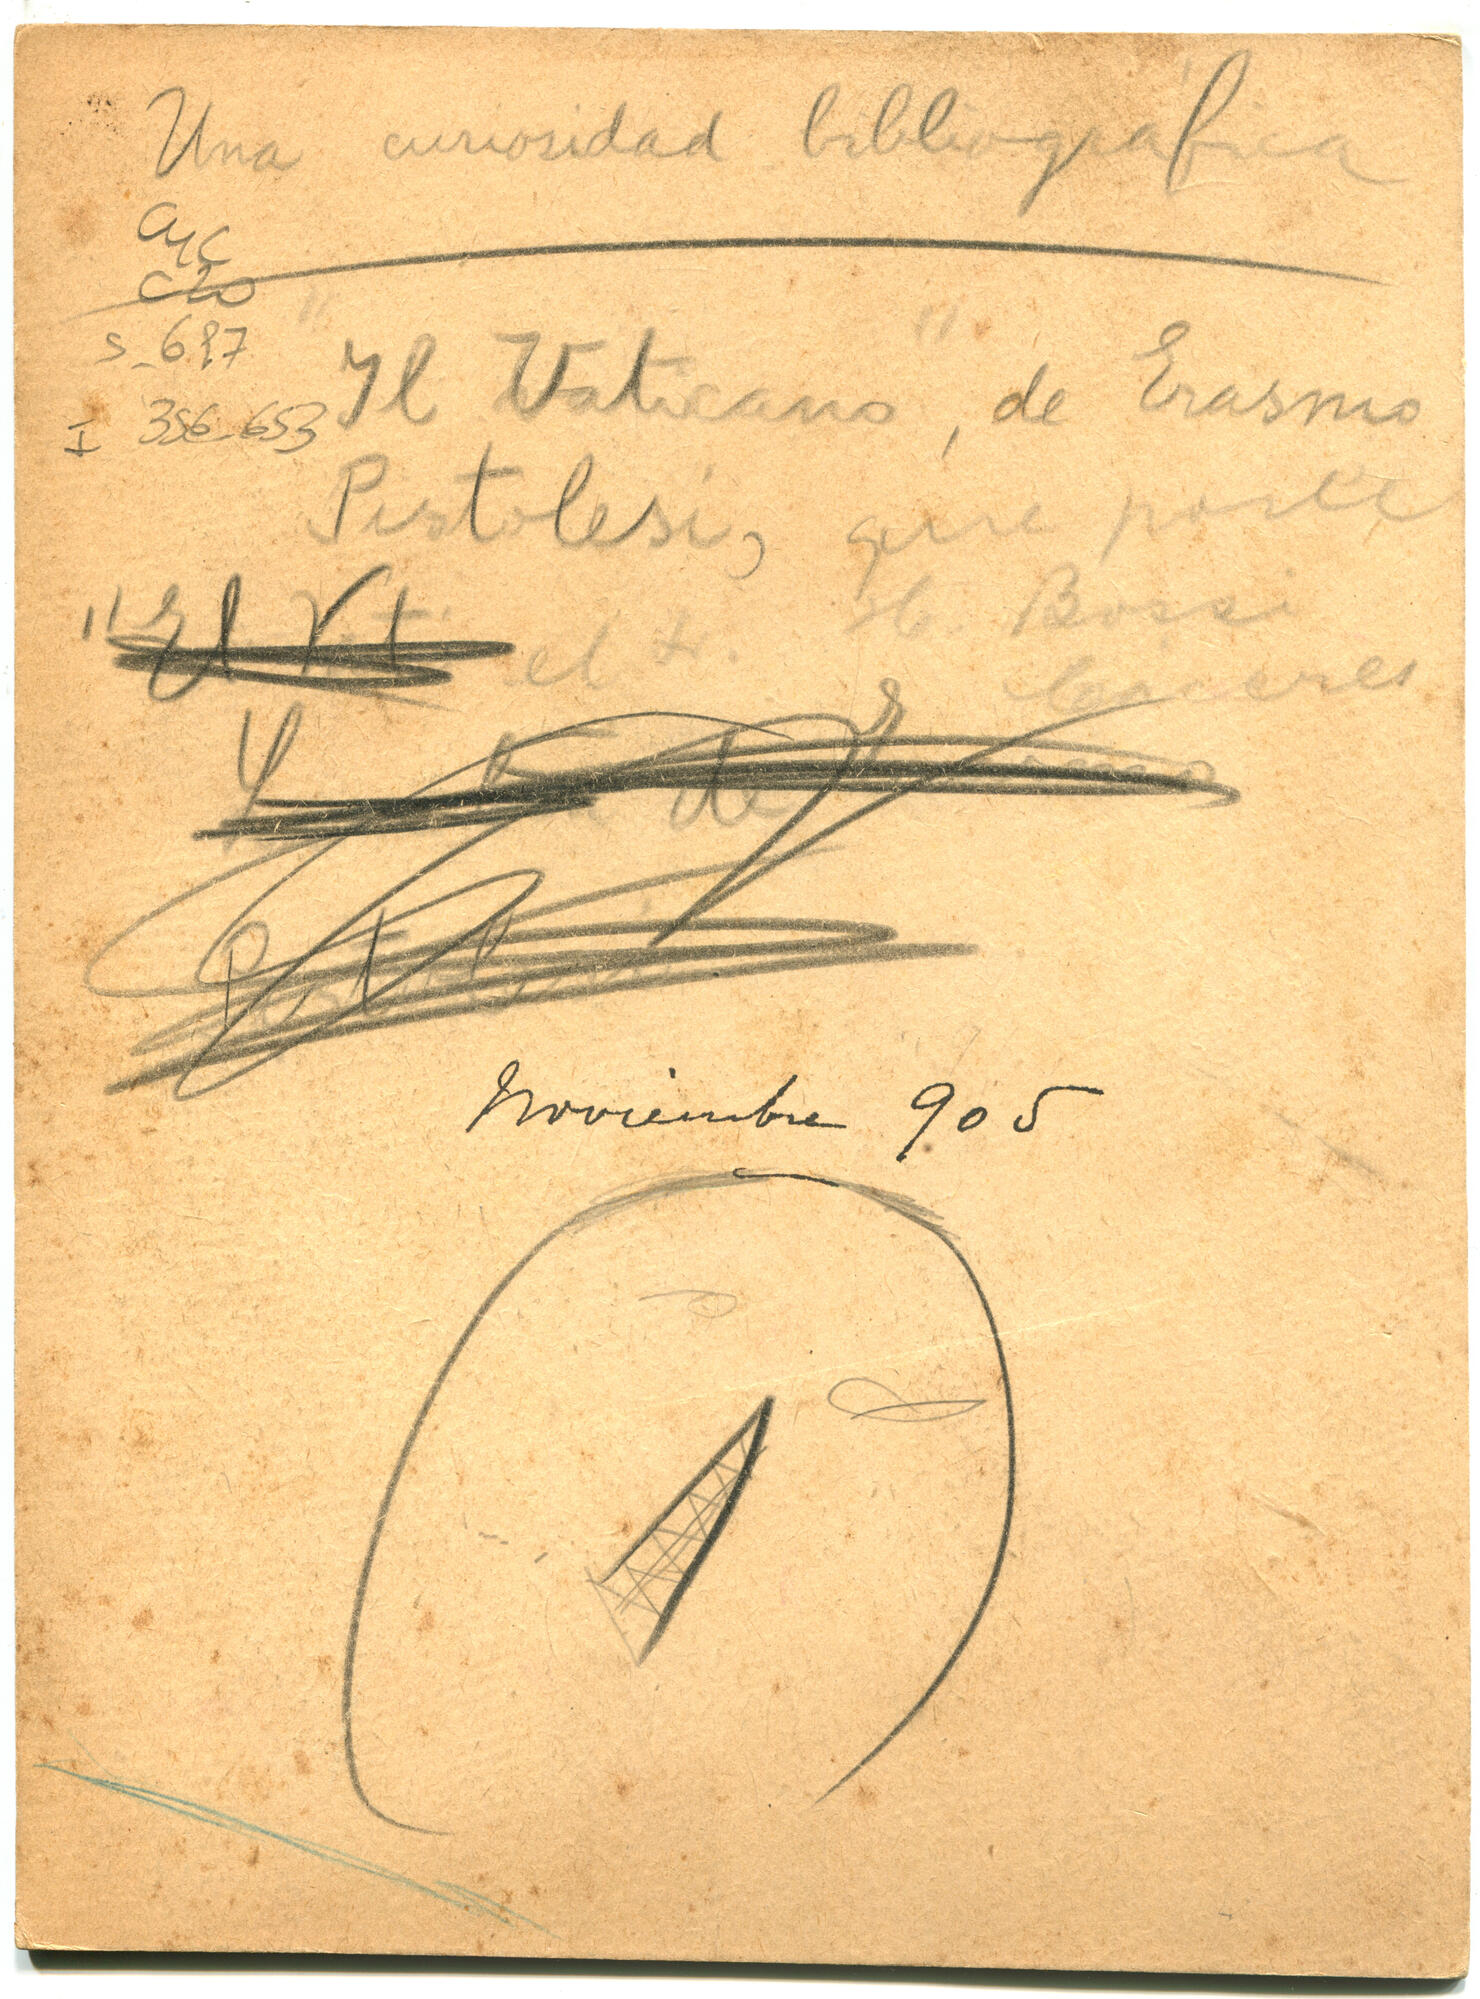 Una curiosidad bibliográfica
CyC
C20
S-687
I 356-653
"Il Vaticano", de Erasmo
Pistolesi, que posee
el Sr. H. Bossi
Cáceres
"El
de
Noviembre 905